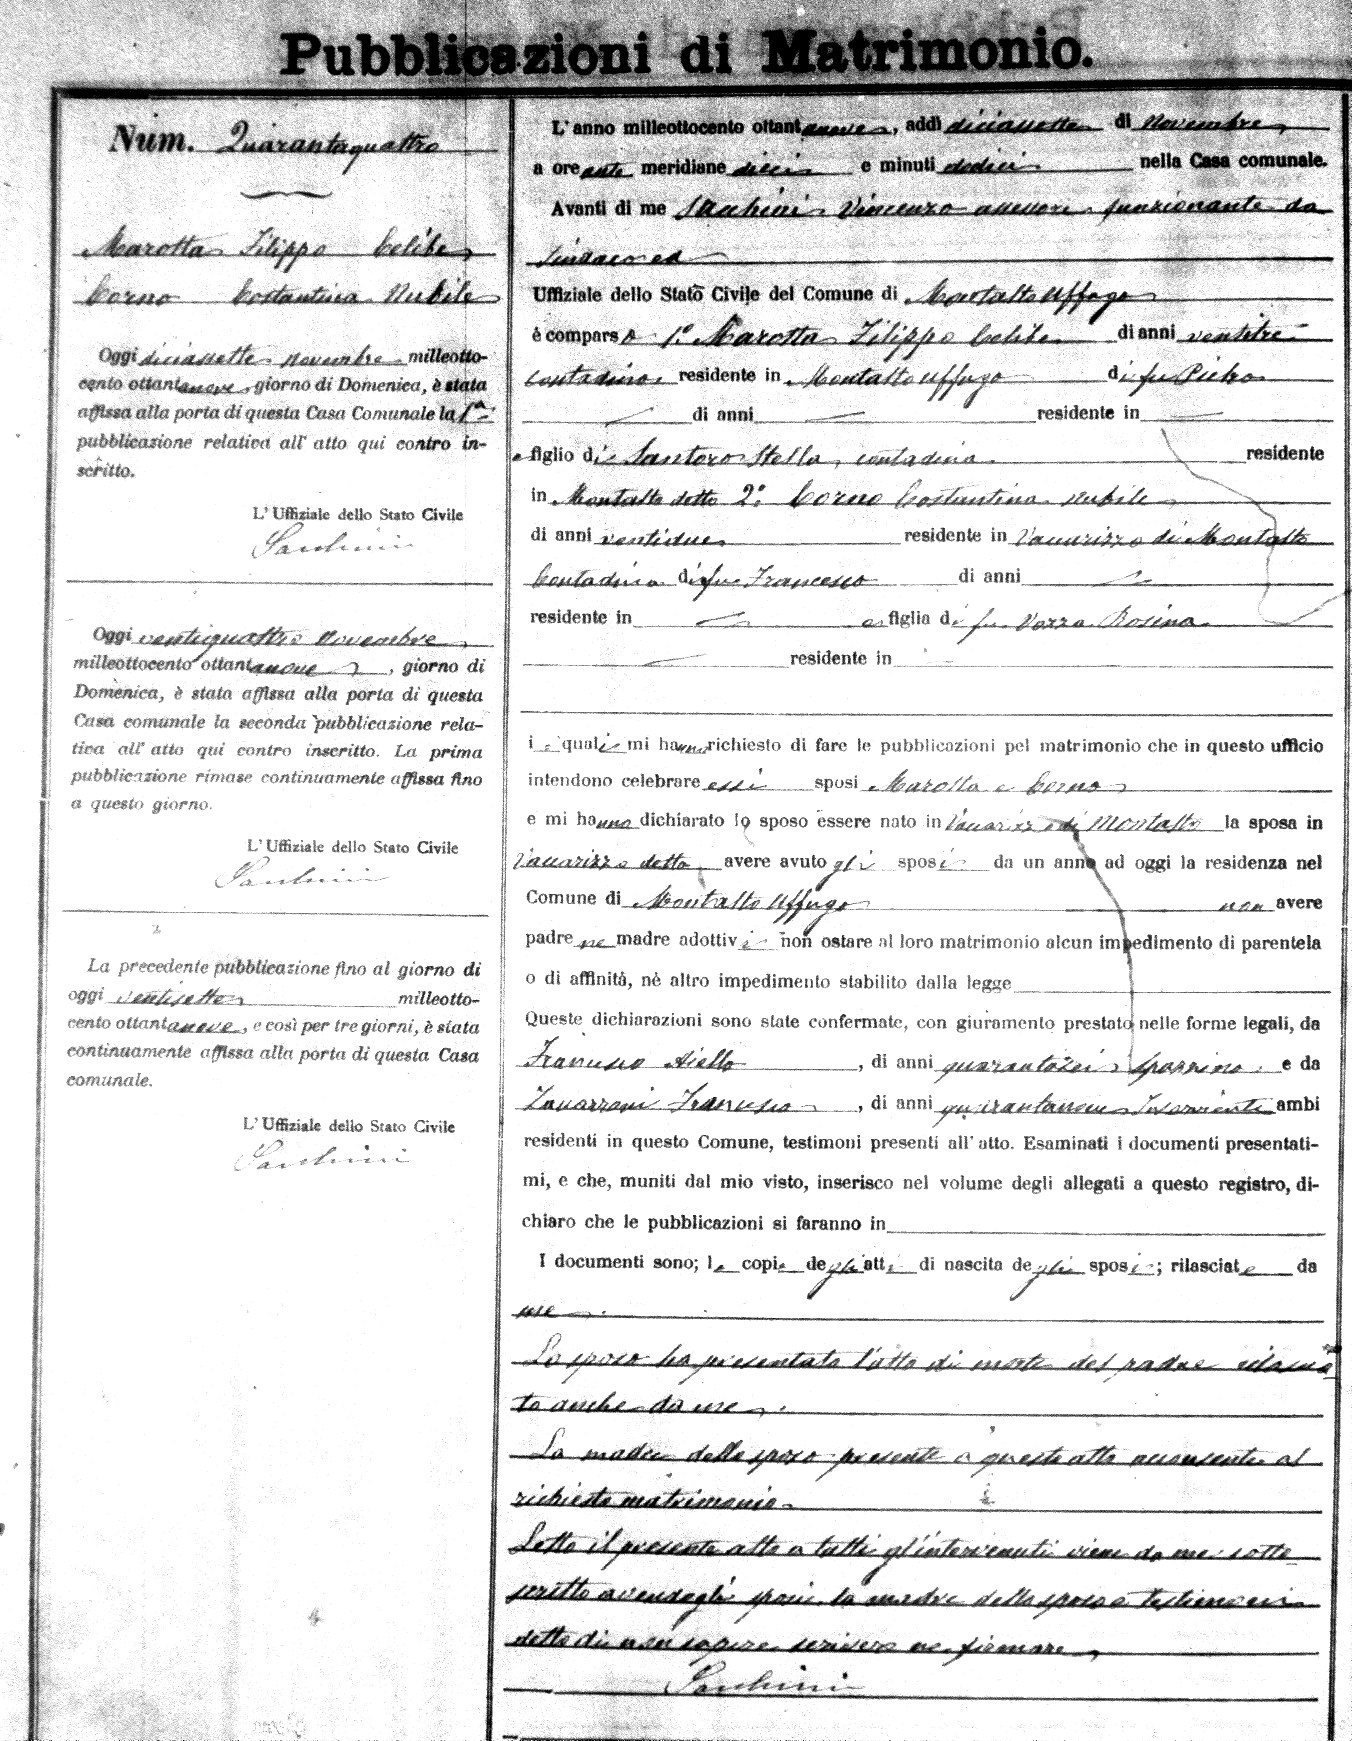 Pubblicazioni di Matrimonio.
Num. Quarantaquattro
Marotta Filippo Celibe
Corno Costantina Nubile
Oggi diciassette novembre milleotto-
cento ottantanove, giorno di Domenica, è stata
affissa alla porta di questa Casa Comunale la 1ª
pubblicazione relativa all' atto qui contro in-
scritto.
L' Uffiziale dello Stato Civile
Sacchini
Oggi ventiquattro novembre
milleottocento ottantanove, giorno di
Domenica, è stata affissa alla porta di questa
Casa comunale la seconda pubblicazione rela-
tiva all' atto qui contro inscritto. La prima
pubblicazione rimase continuamente affissa fino
a questo giorno.
L' Uffiziale dello Stato Civile
Sacchini
La precedente pubblicazione fino al giorno di
oggi ventisette milleotto-
cento ottantanove, e così per tre giorni, è stata
continuamente affissa alla porta di questa Casa
comunale.
L' Uffiziale dello Stato Civile
Sacchini
L' anno milleottocento ottantanove, addì diciassette di Novembre
a ore ante meridiane dieci e minuti dodici nella Casa comunale.
Avanti di me Sacchini Vincenzo assessore funzionante da
Sindaco ed
Uffiziale dello Stato Civile del Comune di Montalto Uffugo
è comparso 1º Marotta Filippo Celibe di anni ventitre
contadino residente in Montalto Uffugo di fu Pietro
di anni residente in
e figlio di Santoro Stella contadina residente
in Montalto detto 2º Corno Costantina nubile
di anni ventidue residente in Vaccarizzo di Montalto
Contadina di fu Francesco di anni
residente in e figlia di fu Vozza Rosina
residente in
i quali mi hanno richiesto di fare le pubblicazioni pel matrimonio che in questo ufficio
intendono celebrare essi sposi Marotta e Corno
e mi hanno dichiarato lo sposo essere nato in Vaccarizzo di Montalto la sposa in
Vaccarizzo detto avere avuto gli sposi da un anno ad oggi la residenza nel
Comune di Montalto Uffugo non avere
padre ne madre adottivi non ostare al loro matrimonio alcun impedimento di parentela
o di affinità, nè altro impedimento stabilito dalla legge
Queste dichiarazioni sono state confermate, con giuramento prestato nelle forme legali, da
Francesco Aiello, di anni quarantasei spazzino e da
Francesco, di anni quarantanove Inserviente ambi
residenti in questo Comune, testimoni presenti all' atto. Esaminati i documenti presentati-
mi, e che, muniti dal mio visto, inserisco nel volume degli allegati a questo registro, di-
chiaro che le pubblicazioni si faranno in
I documenti sono; le copie degli atti di nascita degli sposi; rilasciate da
me.
Lo sposo ha presentato l'atto di morte del padre rilascia
to anche da me.
La madre dello sposo presente a questo atto acconsente al
richiesto matrimonio.
Letto il presente atto a tutti gl'intervenuti viene da me sotto
scritto avendo gli sposi la madre dello sposo e testimoni
detto di non sapere scrivere ne firmare
Sacchini